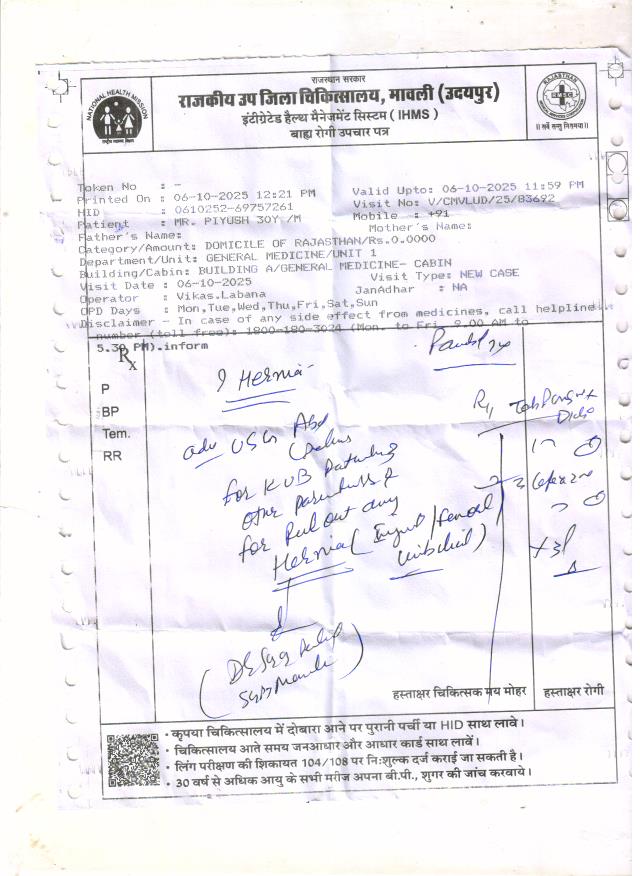 राजस्थान सरकार
राजकीय उप जिला चिकित्सालय, मावली (उदयपुर)
इंटीग्रेटेड हैल्थ मैनेजमेंट सिस्टम ( IHMS )
बाह्य रोगी उपचार पत्र
NATIONAL HEALTH MISSION
RAJASTHAN
॥ सर्वे सन्तु निरामया: ॥
Token No : -
Printed On : 06-10-2025 12:21 PM Valid Upto: 06-10-2025 11:59 PM
HID : 0610252-69757261 Visit No: V/CMVLUD/25/83692
Patient : MR. PIYUSH 30Y /M Mobile : +91
Father's Name: Mother's Name:
Category/Amount: DOMICILE OF RAJASTHAN/Rs.0.0000
Department/Unit: GENERAL MEDICINE/UNIT 1
Building/Cabin: BUILDING A/GENERAL MEDICINE- CABIN
Visit Date : 06-10-2025 Visit Type: NEW CASE
Operator : Vikas.Labana JanAadhar : NA
OPD Days : Mon,Tue,Wed,Thu,Fri,Sat,Sun
Disclaimer - In case of any side effect from medicines, call helpline
number (toll free): 1800-180-3024 (Mon. to Fri. 9.00 AM to
5.30 PM).inform
Rx
? Hernia
P
BP
Tem.
RR
adv USG Abd
for KUB
other
for Rule out any
Hernia ( /
)
हस्ताक्षर चिकित्सक मय मोहर हस्ताक्षर रोगी
• कृपया चिकित्सालय में दोबारा आने पर पुरानी पर्ची या HID साथ लावे।
• चिकित्सालय आते समय जनआधार और आधार कार्ड साथ लावें।
• लिंग परीक्षण की शिकायत 104/108 पर नि:शुल्क दर्ज कराई जा सकती है।
• 30 वर्ष से अधिक आयु के सभी मरीज अपना बी.पी., शुगर की जांच करवाये।